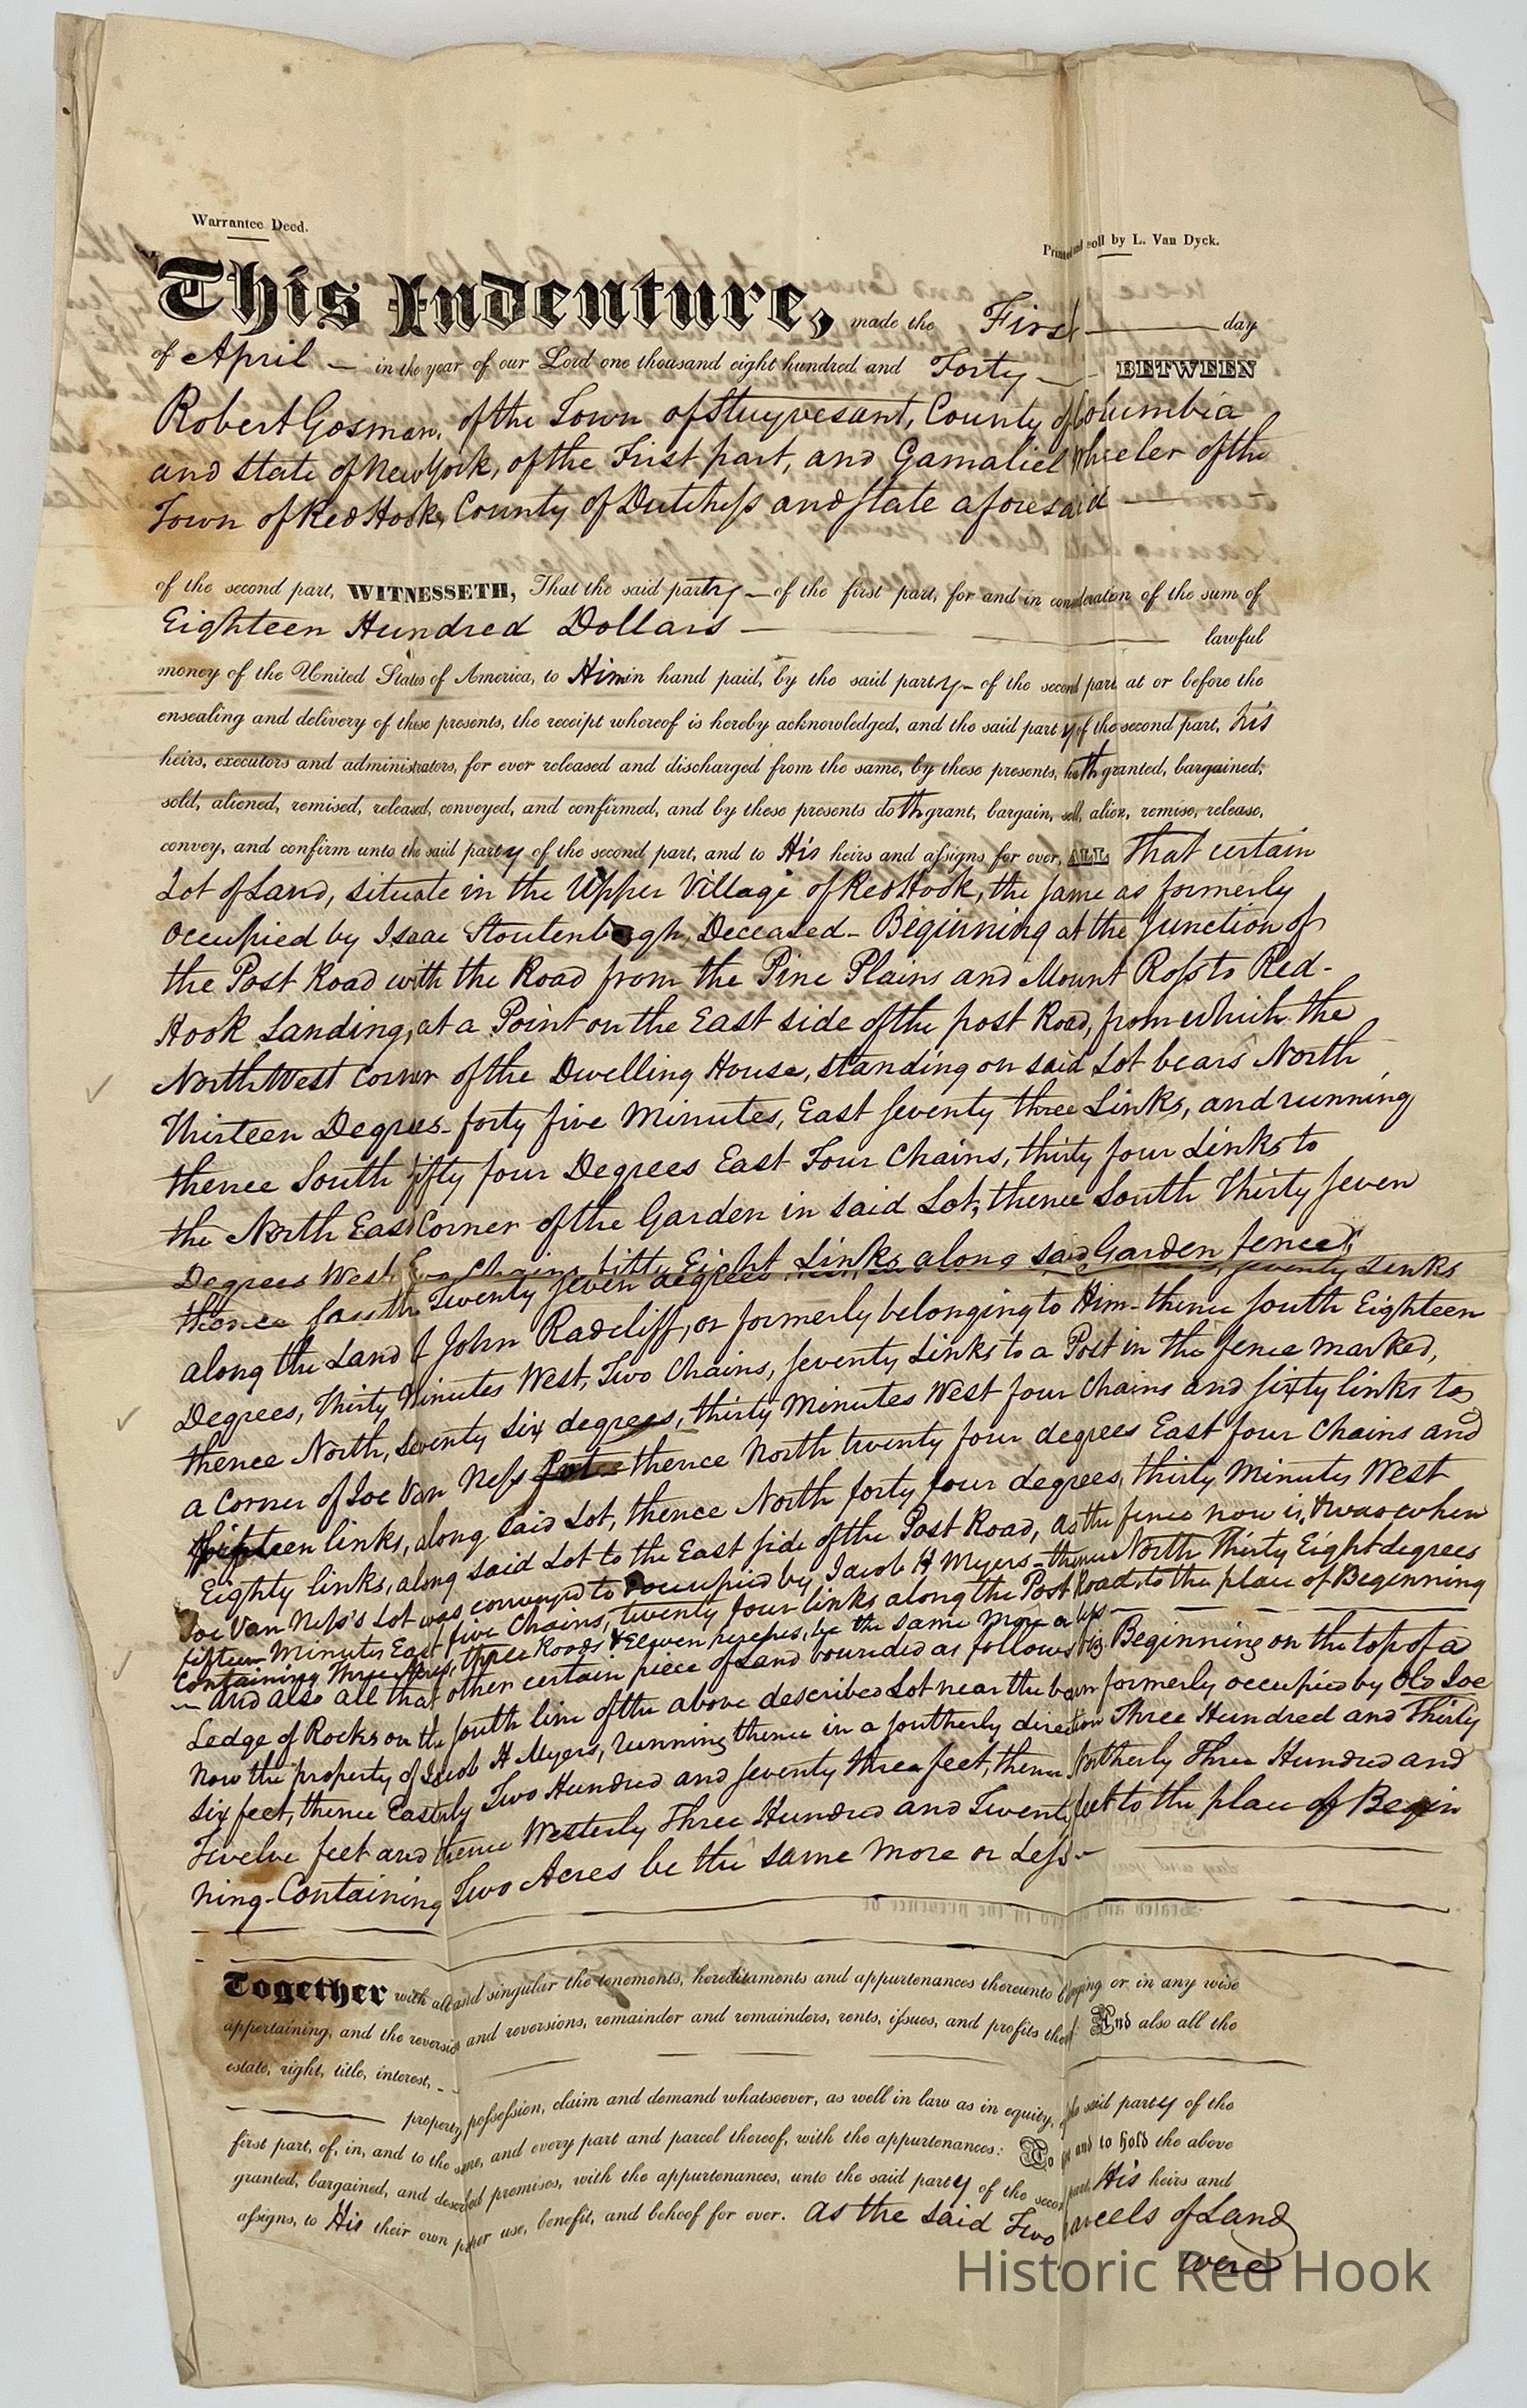 Warrantee Deed.
Printed and sold by L. Van Dyck.
This Indenture, made the First day
of April in the year of our Lord one thousand eight hundred and Forty BETWEEN
Robert Gosman, of the Town of Stuyvesant, County of Columbia
and State of New York, of the First part, and Gamaliel Wheeler of the
Town of Red Hook, County of Dutchess and State aforesaid
of the second part, WITNESSETH, That the said party of the first part, for and in consideration of the sum of
Eighteen Hundred Dollars lawful
money of the United States of America, to Him in hand paid, by the said party of the second part, at or before the
ensealing and delivery of these presents, the receipt whereof is hereby acknowledged, and the said party of the second part, his
heirs, executors and administrators, for ever released and discharged from the same, by these presents, hath granted, bargained,
sold, aliened, remised, released, conveyed, and confirmed, and by these presents doth grant, bargain, sell, alien, remise, release,
convey, and confirm unto the said party of the second part, and to His heirs and assigns for ever, ALL That certain
Lot of Land, situate in the Upper Village of Red Hook, the same as formerly
occupied by Isaac Stoutenburgh, Deceased - Beginning at the Junction of
the Post Road with the Road from the Pine Plains and Mount Ross to Red-
Hook Landing, at a Point on the East side of the post Road, from which the
North West Corner of the Dwelling House, standing on said Lot bears North
Thirteen Degrees - forty five Minutes, East seventy three Links, and running
thence South fifty four Degrees East Four Chains, thirty four Links to
the North East Corner of the Garden in said Lot, thence South Thirty seven
Degrees West Two Chains fifty Eight Links along said Garden fence,
thence South Twenty seven degrees seventy Links
along the Land of John Radcliff, or formerly belonging to Him - thence South Eighteen
Degrees, Thirty Minutes West, Two Chains, seventy Links to a Post in the fence marked,
thence North, seventy six degrees, thirty Minutes West four Chains and sixty links to
a Corner of Joe Van Ness thence North twenty four degrees East four Chains and
fifteen links, along said Lot, thence North forty four degrees, thirty Minutes West
Eighty links, along said Lot to the East side of the Post Road, as the fence now is, & was when
Joe Van Ness's Lot was conveyed to & occupied by Jacob H Myers - thence North Thirty Eight degrees
fifteen Minutes East five Chains, twenty four links along the Post Road, to the place of Beginning
Containing Three Acres, three Roods & Eleven perches, be the same more or less
- and also all that other certain piece of Land bounded as follows viz. Beginning on the top of a
Ledge of Rocks on the South line of the above described Lot near the barn formerly occupied by Old Joe
Now the property of Jacob H Myers, running thence in a southerly direction Three Hundred and Thirty
six feet, thence Easterly Two Hundred and seventy three feet, thence Northerly Three Hundred and
Twelve feet and thence Westerly Three Hundred and Twenty feet to the place of Begin
ning - Containing Two Acres be the same more or Less -
Together with all and singular the tenements, hereditaments and appurtenances thereunto belonging or in any wise
appertaining, and the reversion and reversions, remainder and remainders, rents, issues, and profits thereof: And also all the
estate, right, title, interest,
property, possession, claim and demand whatsoever, as well in law as in equity, of the said party of the
first part, of, in, and to the same, and every part and parcel thereof, with the appurtenances: To have and to hold the above
granted, bargained, and described premises, with the appurtenances, unto the said party of the second part, His heirs and
assigns, to His their own proper use, benefit, and behoof for ever. As the said Two parcels of Land
were
Historic Red Hook